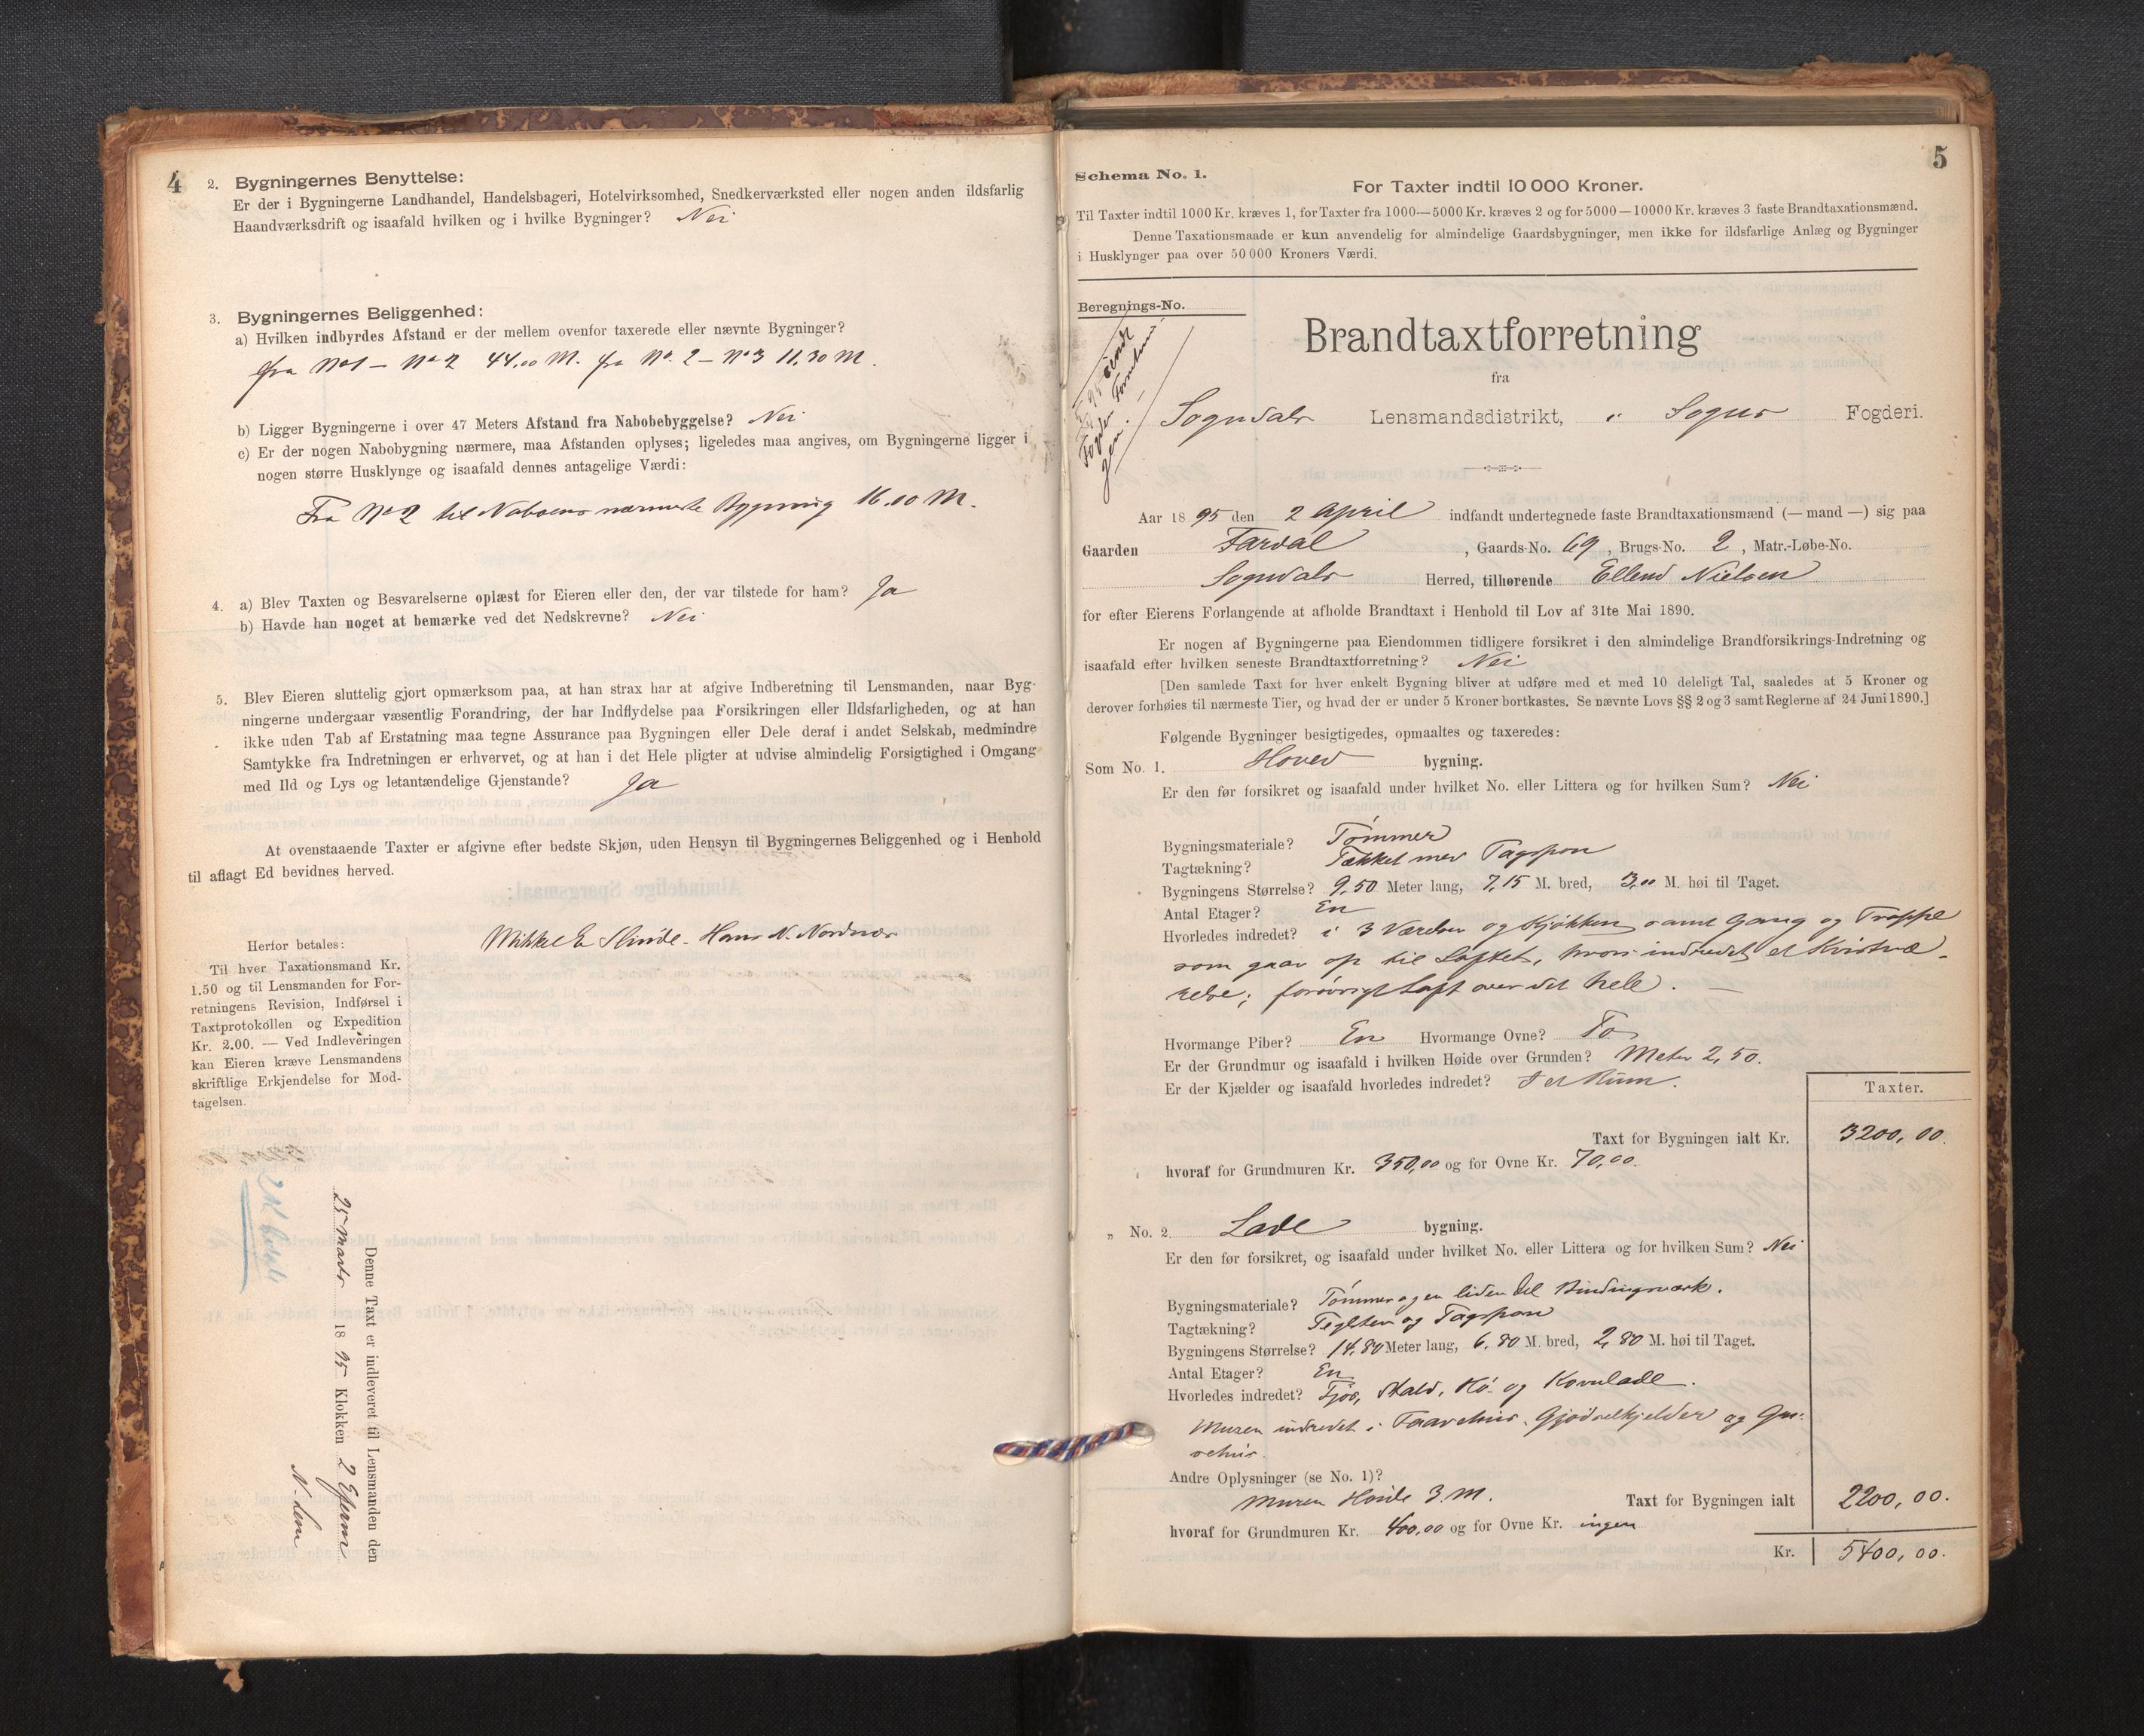 4
2. Bygningernes Benyttelse:
Er der i Bygningerne Landhandel, Handelsbageri, Hotelvirksomhed, Snedkerværksted eller nogen anden ildsfarlig
Haandværksdrift og isaafald hvilken og i hvilke Bygninger? Nei
3. Bygningernes Beliggenhed:
a) Hvilken indbyrdes Afstand er der mellem ovenfor taxerede eller nævnte Bygninger?
fra No 1 – No 2 44,00 M. fra No. 2 – No 3 11,20 M.
b) Ligger Bygningerne i over 47 Meters Afstand fra Nabobebyggelse? Nei
c) Er der nogen Nabobygning nærmere, maa Afstanden oplyses; ligeledes maa angives, om Bygningerne ligger i
nogen større Husklynge og isaafald dennes antagelige Værdi:
Fra No 2 til Naboens nærmeste Bygning 16.00 M.
4. a) Blev Taxten og Besvarelserne oplæst for Eieren eller den, der var tilstede for ham? Ja
b) Havde han noget at bemærke ved det Nedskrevne? Nei
5. Blev Eieren sluttelig gjort opmærksom paa, at han strax har at afgive Indberetning til Lensmanden, naar Byg-
ningerne undergaar væsentlig Forandring, der har Indflydelse paa Forsikringen eller Ildsfarligheden, og at han
ikke uden Tab af Erstatning maa tegne Assurance paa Bygningen eller Dele deraf i andet Selskab, medmindre
Samtykke fra Indretningen er erhvervet, og at han i det Hele pligter at udvise almindelig Forsigtighed i Omgang
med Ild og Lys og letantændelige Gjenstande? Ja
At ovenstaaende Taxter er afgivne efter bedste Skjøn, uden Hensyn til Bygningernes Beliggenhed og i Henhold
til aflagt Ed bevidnes herved.
Mikkel E Slinde. Hans N. Nordnæs
Herfor betales:
Til hver Taxationsmand Kr.
1.50 og til Lensmanden for For-
retningens Revision, Indførsel i
Taxtprotokollen og Expedition
Kr. 2.00. — Ved Indleveringen
kan Eieren kræve Lensmandens
skriftlige Erkjendelse for Mod-
tagelsen.
Denne Taxt er indleveret til Lensmanden den
25 Marts 1895 Klokken 2 Efterm
5
Schema No. 1.
For Taxter indtil 10 000 Kroner.
Til Taxter indtil 1000 Kr. kræves 1, for Taxter fra 1000—5000 Kr. kræves 2 og for 5000—10000 Kr. kræves 3 faste Brandtaxationsmænd.
Denne Taxationsmaade er kun anvendelig for almindelige Gaardsbygninger, men ikke for ildsfarlige Anlæg og Bygninger
i Husklynger paa over 50 000 Kroners Værdi.
Beregnings-No.
Brandtaxtforretning
fra
Sogndals Lensmandsdistrikt, i Sogns Fogderi.
Aar 1895 den 2 April indfandt undertegnede faste Brandtaxationsmænd (— mand —) sig paa
Gaarden Fardal, Gaards-No. 69, Brugs-No. 2, Matr.-Løbe-No.
Sogndals Herred, tilhørende Ellend Nielsen
for efter Eierens Forlangende at afholde Brandtaxt i Henhold til Lov af 31te Mai 1890.
Er nogen af Bygningerne paa Eiendommen tidligere forsikret i den almindelige Brandforsikrings-Indretning og
isaafald efter hvilken seneste Brandtaxtforretning? Nei
[Den samlede Taxt for hver enkelt Bygning bliver at udføre med et med 10 deleligt Tal, saaledes at 5 Kroner og
derover forhøies til nærmeste Tier, og hvad der er under 5 Kroner bortkastes. Se nævnte Lovs §§ 2 og 3 samt Reglerne af 24 Juni 1890.]
Følgende Bygninger besigtigedes, opmaaltes og taxeredes:
Som No. 1. Hoved bygning.
Er den før forsikret og isaafald under hvilket No. eller Littera og for hvilken Sum? Nei
Bygningsmateriale? Tømmer
Tagtækning? Tækket med Tagspon
Bygningens Størrelse? 9,50 Meter lang, 7,15 M. bred, 3,00 M. høi til Taget.
Antal Etager? En
Hvorledes indredet? i 3 Værelser og Kjøkken samt Gang og Trappe
som gaar op til Loftet, hvor indredet et Kvistvæ-
relse; forøvrigt Loft over det hele.
Hvormange Piber? En Hvormange Ovne? To
Er der Grundmur og isaafald i hvilken Høide over Grunden? Meter 2,50.
Er der Kjælder og isaafald hvorledes indredet? I et Rum.
Taxter.
Taxt for Bygningen ialt Kr. 3200,00
hvoraf for Grundmuren Kr. 350,00 og for Ovne Kr. 70,00.
„ No. 2 Lade bygning.
Er den før forsikret, og isaafald under hvilket No. eller Littera og for hvilken Sum? Nei
Bygningsmateriale? Tømmer og en liden del Bindingsværk.
Tagtækning? Teglsten og Tagspon
Bygningens Størrelse? 14,80 Meter lang, 6,80 M. bred, 2,80 M. høi til Taget.
Antal Etager? En
Hvorledes indredet? Fjøs, Stald, Hø- og Kornlade.
Muren indredet i Faarehus, Gjødselkjelder og
Andre Oplysninger (se No. 1)?
Muren Høide 3. M. Taxt for Bygningen ialt 2200,00.
hvoraf for Grundmuren Kr. 400,00 og for Ovne Kr. ingen
Kr. 5400,00.